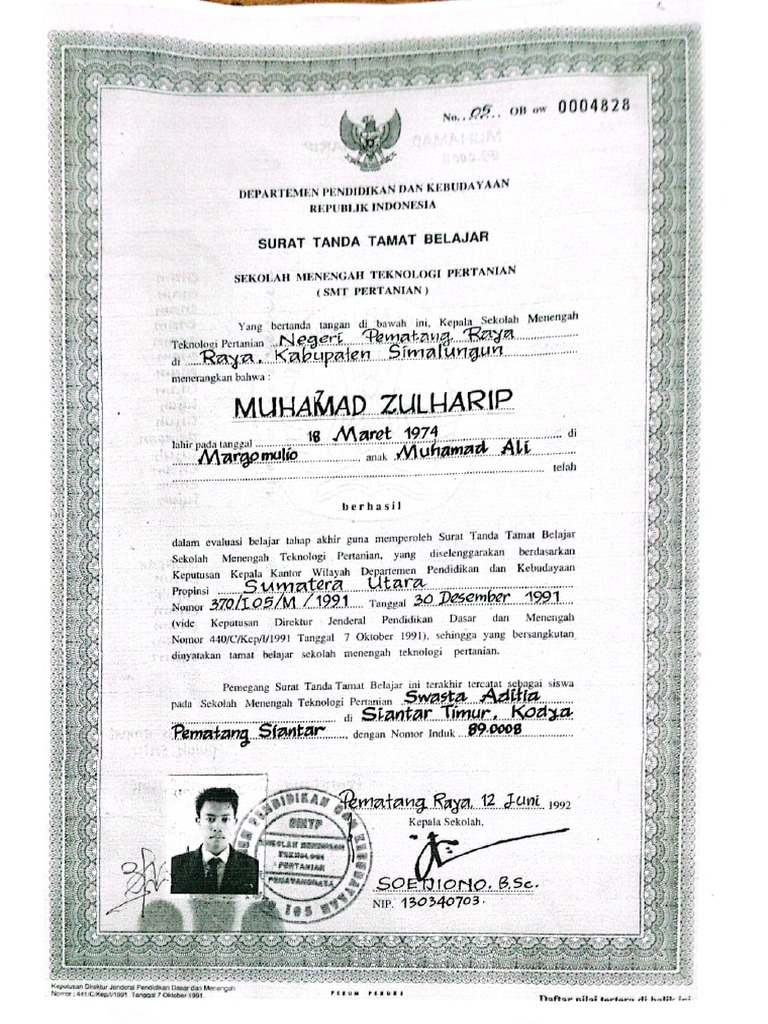 No. 05 OB ow 0004828
DEPARTEMEN PENDIDIKAN DAN KEBUDAYAAN
REPUBLIK INDONESIA
SURAT TANDA TAMAT BELAJAR
SEKOLAH MENENGAH TEKNOLOGI PERTANIAN
( SMT PERTANIAN )
Yang bertanda tangan di bawah ini, Kepala Sekolah Menengah
Teknologi Pertanian Negeri Pematang Raya
di Raya. Kabupaten Simalungun
menerangkan bahwa :
MUHAMAD ZULHARIP
lahir pada tanggal 18 Maret 1974 di
Margomulio anak Muhamad Ali
telah
berhasil
dalam evaluasi belajar tahap akhir guna memperoleh Surat Tanda Tamat Belajar
Sekolah Menengah Teknologi Pertanian, yang diselenggarakan berdasarkan
Keputusan Kepala Kantor Wilayah Departemen Pendidikan dan Kebudayaan
Propinsi Sumatera Utara
Nomor 370/I.05/M/1991 Tanggal 30 Desember 1991
(vide Keputusan Direktur Jenderal Pendidikan Dasar dan Menengah
Nomor 440/C/Kep/I/1991 Tanggal 7 Oktober 1991), sehingga yang bersangkutan
dinyatakan tamat belajar sekolah menengah teknologi pertanian.
Pemegang Surat Tanda Tamat Belajar ini terakhir tercatat sebagai siswa
pada Sekolah Menengah Teknologi Pertanian Swasta Aditia
di Siantar Timur. Kodya
Pematang Siantar, dengan Nomor Induk 89.0008
Pematang Raya, 12 Juni 1992
Kepala Sekolah,
SMTP
SEKOLAH MENENGAH
TEKNOLOGI
PERTANIAN
SOEDJONO. B.Sc.
NIP. 130340703.
Keputusan Direktur Jenderal Pendidikan Dasar dan Menengah
Nomor : 441/C/Kep/I/1991 Tanggal 7 Oktober 1991
PERUM PERURI
Daftar nilai tertera di balik ini